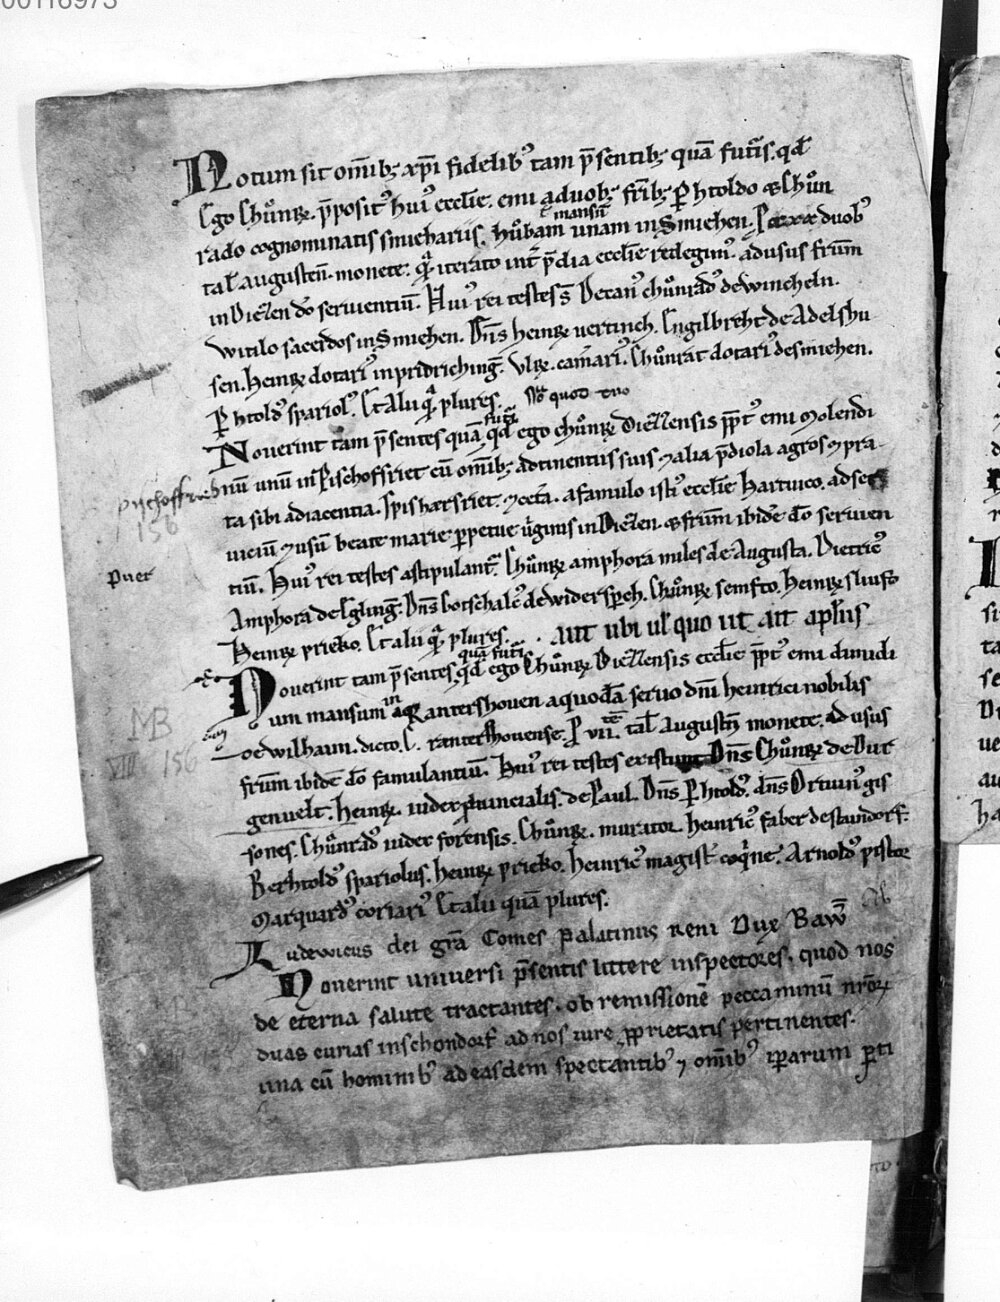 00116973
Notum sit om̄ib; xp̄i fidelib' tam p̄sentib; quā futur̄is. qd̄
Ego Chůnr̄. p̄posit' hui' eccl̄ie. emi a duob; fr̄ib; P̱htoldo & Chůn
mansū
rado cognominatis smieharus. hůbam unam in Smiehen. P duob'
tal̄ augusten̄. monete. q̄ iterato int̄ p̄dia eccl̄ie redegim'. ad usus fr̄um
in Diezen dō seruientiū. Hui' rei testes s̄. Decan' chůnrad' de wincheln.
Witilo sacerdos in Smiehen. Dn̄s heinr̄ uertinch. Engilbreht de Adelshu
sen. Heinr̄ dotari' in pridrichinḡ. Vlr̄. cam̄ari'. Chůnrat dotari' de smiehen.
P̱htold' spariol'. Et alii q̄ plures. quod tuo
futur̄
Nouerint tam p̄sentes quā qd̄ ego chůnr̄ Diezensis p̄pt' emi molendi
pischoffried
nū unū in Pischoffsriet cū om̄ib; adtinentiis suis & alia p̄diola agros & pra
156
ta sibi adiacentia. Ipishartsriet. & cet̄a. a famulo isti' eccl̄ie Hartwico. ad ser
uiciū & usū beate marie perpetue uirginis in Diezen. & fr̄um ibidē dō seruien
puer
tiū. Hui' rei testes astipulant̄. Chůnr̄ amphora miles de Augusta. Dietric'
Amphora de Eglinḡ. Dn̄s Gotschalc' de widersp̄ch. Chůnr̄ semfto. Heinr̄ sliufo
Heinr̄ prieko. Et alii q̄ plures. aut ubi ul̄ quo ut ait apl̄us
quā futur̄
Nouerint tam p̄sentes qd̄ ego Chůnr̄ Diezensis eccl̄ie p̄pt' emi dimidi
in
um mansum Rantershouen a quodā seruo dn̄i heinrici nobilis
MB
de wilhaim. dicto. C. rantershouense. P vii. tal̄ augustn̄ monete. ad usus
VIII 156
fr̄um ibidē dō famulantiū. Hui' rei testes existunt Dn̄s Chůnr̄ de Dur
genuelt. Heinr̄. iudex p̄uincialis. de Paul. Dn̄s P̱htold'. dn̄s Ortwin' gis
sones. Chůnrad' iudex forensis. Chůnr̄. murator. heinric' faber de standorf.
Berhtold' spariolus. heinr̄ prieko. heinric' magist̄ coq̄ne. Arnold' pistor
Marquard' coriari' Et alii quā plures.
Ludewicus dei gr̄a Comes palatinus Reni Dux Baw̄
Nouerint uniuersi p̄sentis littere inspectores. quod nos
de eterna salute tractantes. ob remissionē peccaminū nr̄oꝝ
duas curias in schondorf ad nos iure p̱prietatis pertinentes.
una cū hominib' ad easdem spectantib' & om̄ib' ip̱arum p̱ti